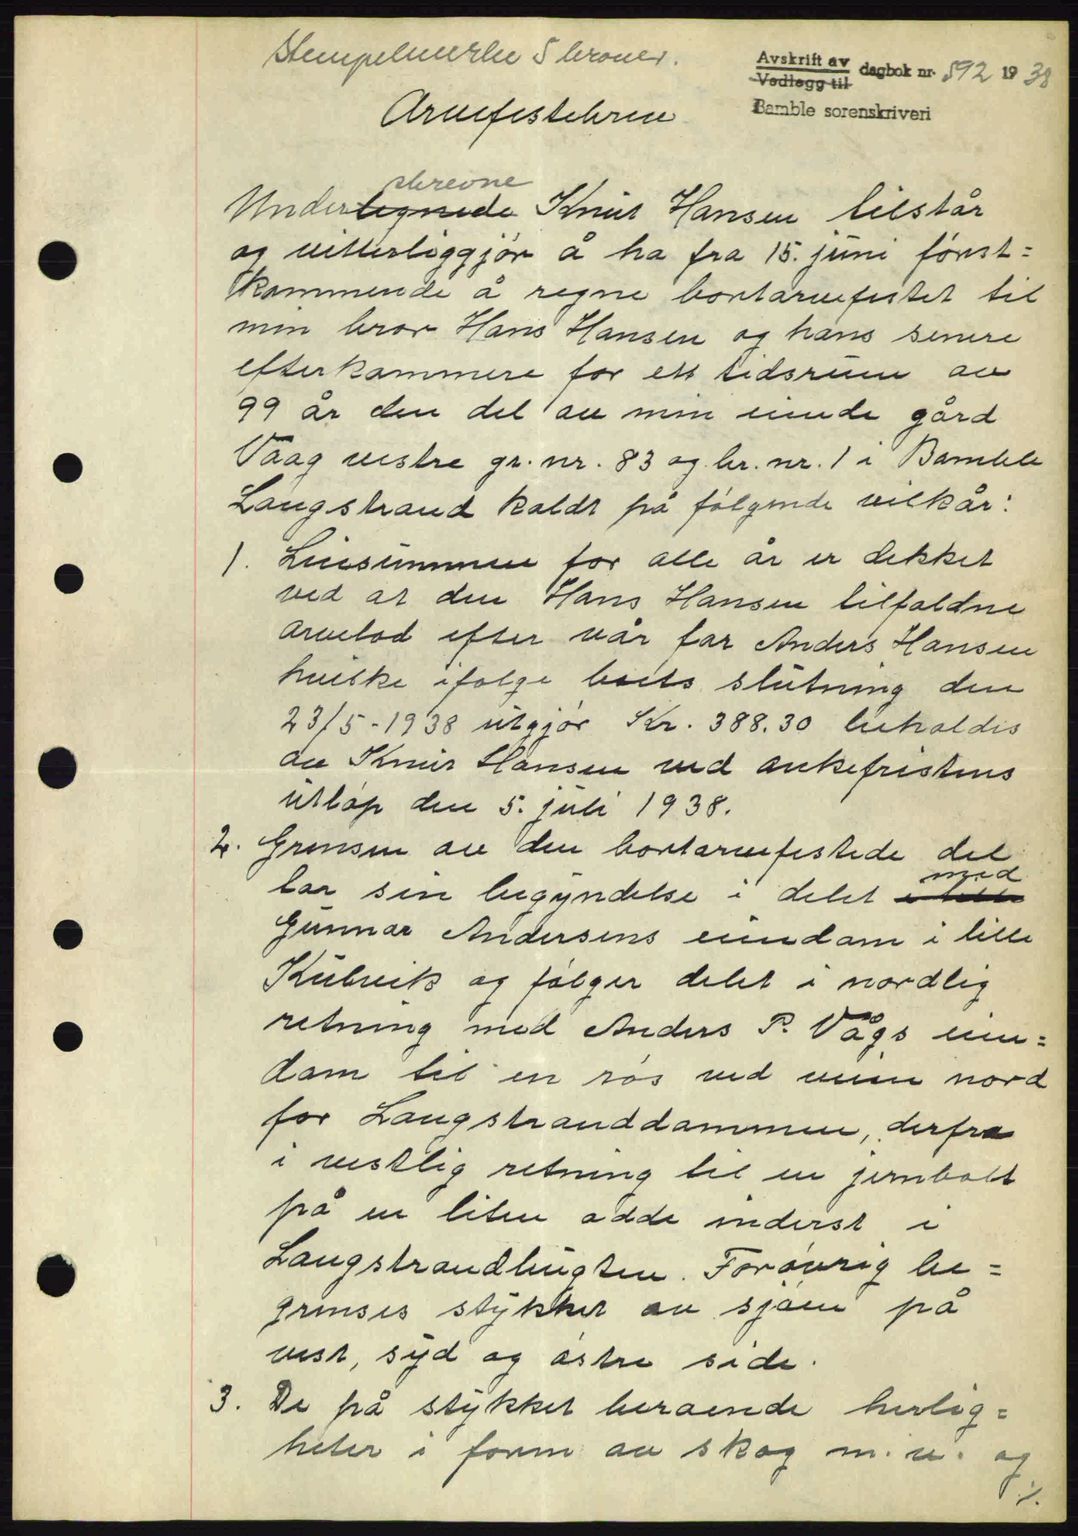 Stempelmerke 5 kroner.
Avskrift av
Vedlegg til
dagbok nr. 592 1938
Bamble sorenskriveri
Arvefestebrev
skrevne
Underlegnede Knut Hansen tilstår
og vitterliggjør å ha fra 15. juni først=
kommende å regne bortarvefestet til
min bror Hans Hansen og hans senere
efterkommere for ett tidsrum av
99 år den del av min eiende gård
Vaag vestre gr. nr. 83 og br. nr. 1 i Bamble
Langstrand kaldt på følgende vilkår:
1. Leiesummen for alle år er dekket
ved at den Hans Hansen tilfaldne
arvelod efter vår far Anders Hansen
hvilke ifølge boets slutning den
23/5-1938 utgjør Kr. 388.30 beholdes
av Knut Hansen ved ankefristens
utløp den 5. juli 1938.
2. Grensen av den bortarvefestede del
tar sin begyndelse i delet med
Gunnar Andersens eiendom i lille
Kubvik og følger delet i nordlig
retning med Anders P. Vågs eien=
dom til en røs ved veien nord
for Langstranddammen, derfra
i vestlig retning til en jernbolt
på en liten odde inderst i
Langstrandbugten. Forøvrig be=
grenses stykket av sjøen på
vest, syd og østre side.
3. De på stykket beroende herlig=
heter i form av skog m. v. og
./.